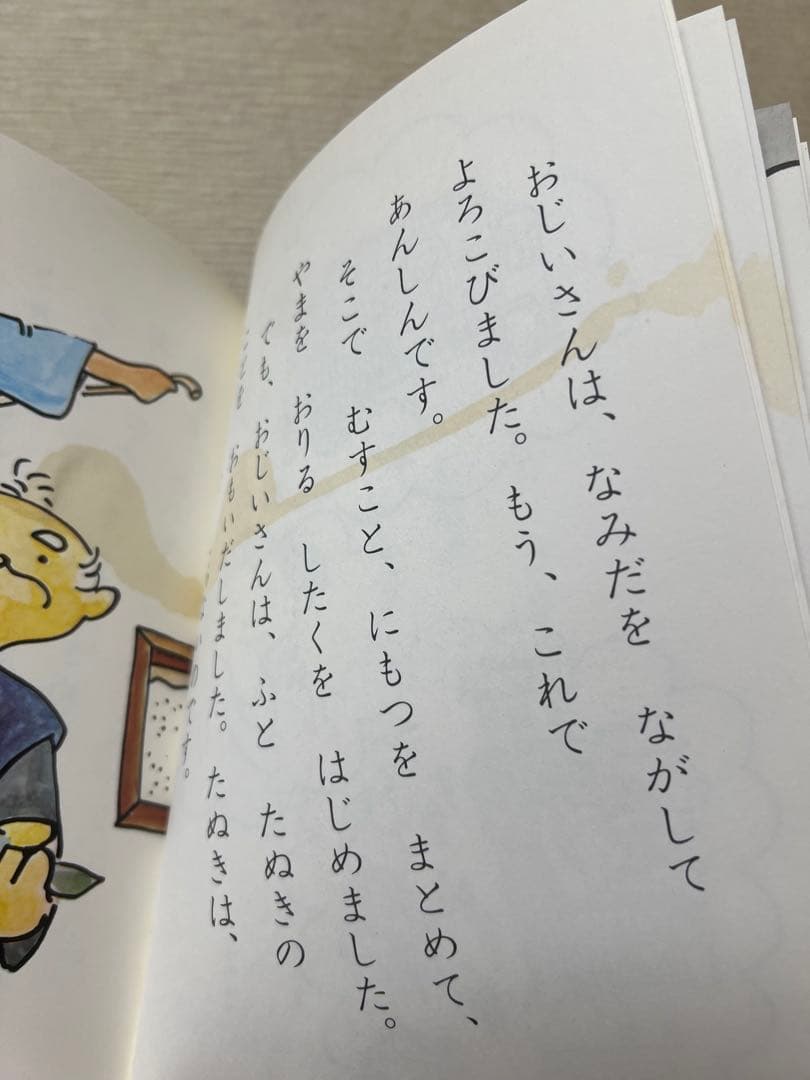 おじいさんは、 なみだを ながして
よろこびました。 もう、 これで
あんしんです。
そこで むすこと、 にもつを まとめて、
やまを おりる したくを はじめました。
でも、 おじいさんは、 ふと たぬきの
ことを おもいだしました。 たぬきは、
のです。